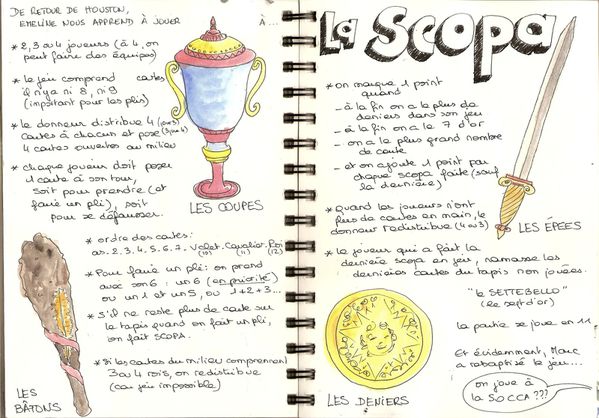 DE RETOUR DE HOUSTON,
EMELINE NOUS APPREND À JOUER À...
* 2, 3 ou 4 joueurs (à 4, on
peut faire des équipes)
* le jeu comprend cartes
il n'y a ni 8, ni 9
(important pour les plis)
* le donneur distribue 4 (ou 3)
cartes à chacun et pose (3 ou 4)
4 cartes ouvertes au milieu
* chaque joueur doit poser
1 carte à son tour,
soit pour prendre (et
faire un pli), soit
pour se défausser.
LES COUPES
* ordre des cartes:
as. 2. 3. 4. 5. 6. 7. Valet. Cavalier. Roi
(10) (11) (12)
* Pour faire un pli: on prend
avec son 6 : un 6 (en priorité)
ou un 1 et un 5, ou 1+2+3...
* S'il ne reste plus de carte sur
le tapis quand on fait un pli,
on fait SCOPA.
* Si les cartes du milieu comprennent
3 ou 4 rois, on redistribue
(car jeu impossible)
LES
BÂTONS
La Scopa
* on marque 1 point
quand
- à la fin on a le plus de
deniers dans son jeu
- à la fin on a le 7 d'or
- on a le plus grand nombre
de carte
- et on ajoute 1 point par
chaque scopa faite (sauf
la dernière)
* Quand les joueurs n'ont
plus de cartes en main, le
donneur redistribue (4 ou 3)
LES ÉPÉES
* le joueur qui a fait la
dernière scopa en jeu, ramasse les
dernières cartes du tapis non jouées.
"le SETTEBELLO"
(le sept d'or)
la partie se joue en 11
Et évidemment, Marc
a rebaptisé le jeu...
on joue à
la SOCCA ???
LES DENIERS